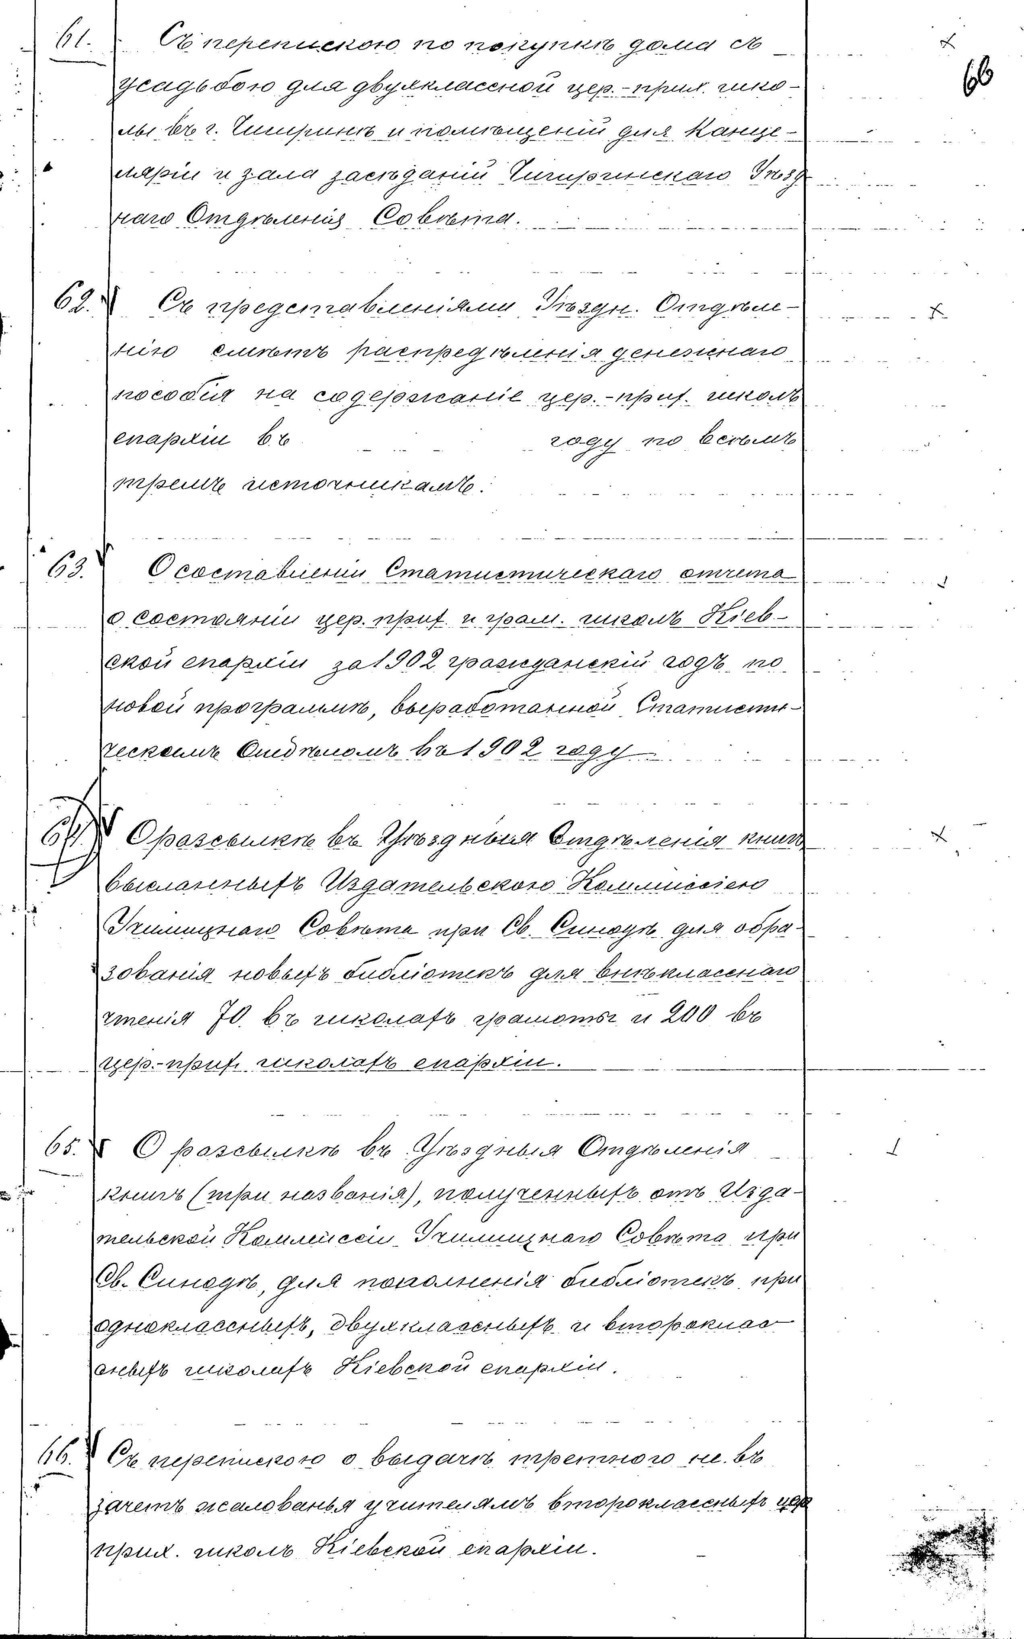 66
61. Съ перепискою по покупкѣ дома съ
усадьбою для двухклассной цер.-прих. шко-
лы въ г. Чигиринѣ и помѣщеній для Канце-
ляріи и зала засѣданій Чигиринскаго Уѣзд-
наго Отдѣленія Совѣта.
62. Съ представленіями Уѣздн. Отдѣле-
нію смѣтъ распредѣленія денежнаго
пособія на содержаніе цер.-прих. школъ
епархіи въ году по всѣмъ
тремъ источникамъ.
63. О составленіи Статистическаго отчета
о состояніи цер. прих. и грам. школъ Кіев-
ской епархіи за 1902 гражданскій годъ по
новой программѣ, выработанной Статисти-
ческимъ Отдѣломъ въ 1902 году
64. О разсылкѣ въ Уѣздныя Отдѣленія книгъ
высланныхъ Издательскою Коммиссіею
Училищнаго Совѣта при Св. Синодѣ для обра-
зованія новыхъ библіотекъ для внѣкласснаго
чтенія 70 въ школахъ грамоты и 200 въ
цер.-прих. школахъ епархіи.
65. О разсылкѣ въ Уѣздныя Отдѣленія
книгъ (три названія), полученныхъ отъ Изда-
тельской Коммиссіи Училищнаго Совѣта при
Св. Синодѣ, для пополненія библіотекъ при
одноклассныхъ, двухклассныхъ и второклас-
сныхъ школахъ Кіевской епархіи.
66. Съ перепискою о выдачѣ третного не въ
зачетъ жалованья учителямъ второклассныхъ цер
прих. школъ Кіевской епархіи.